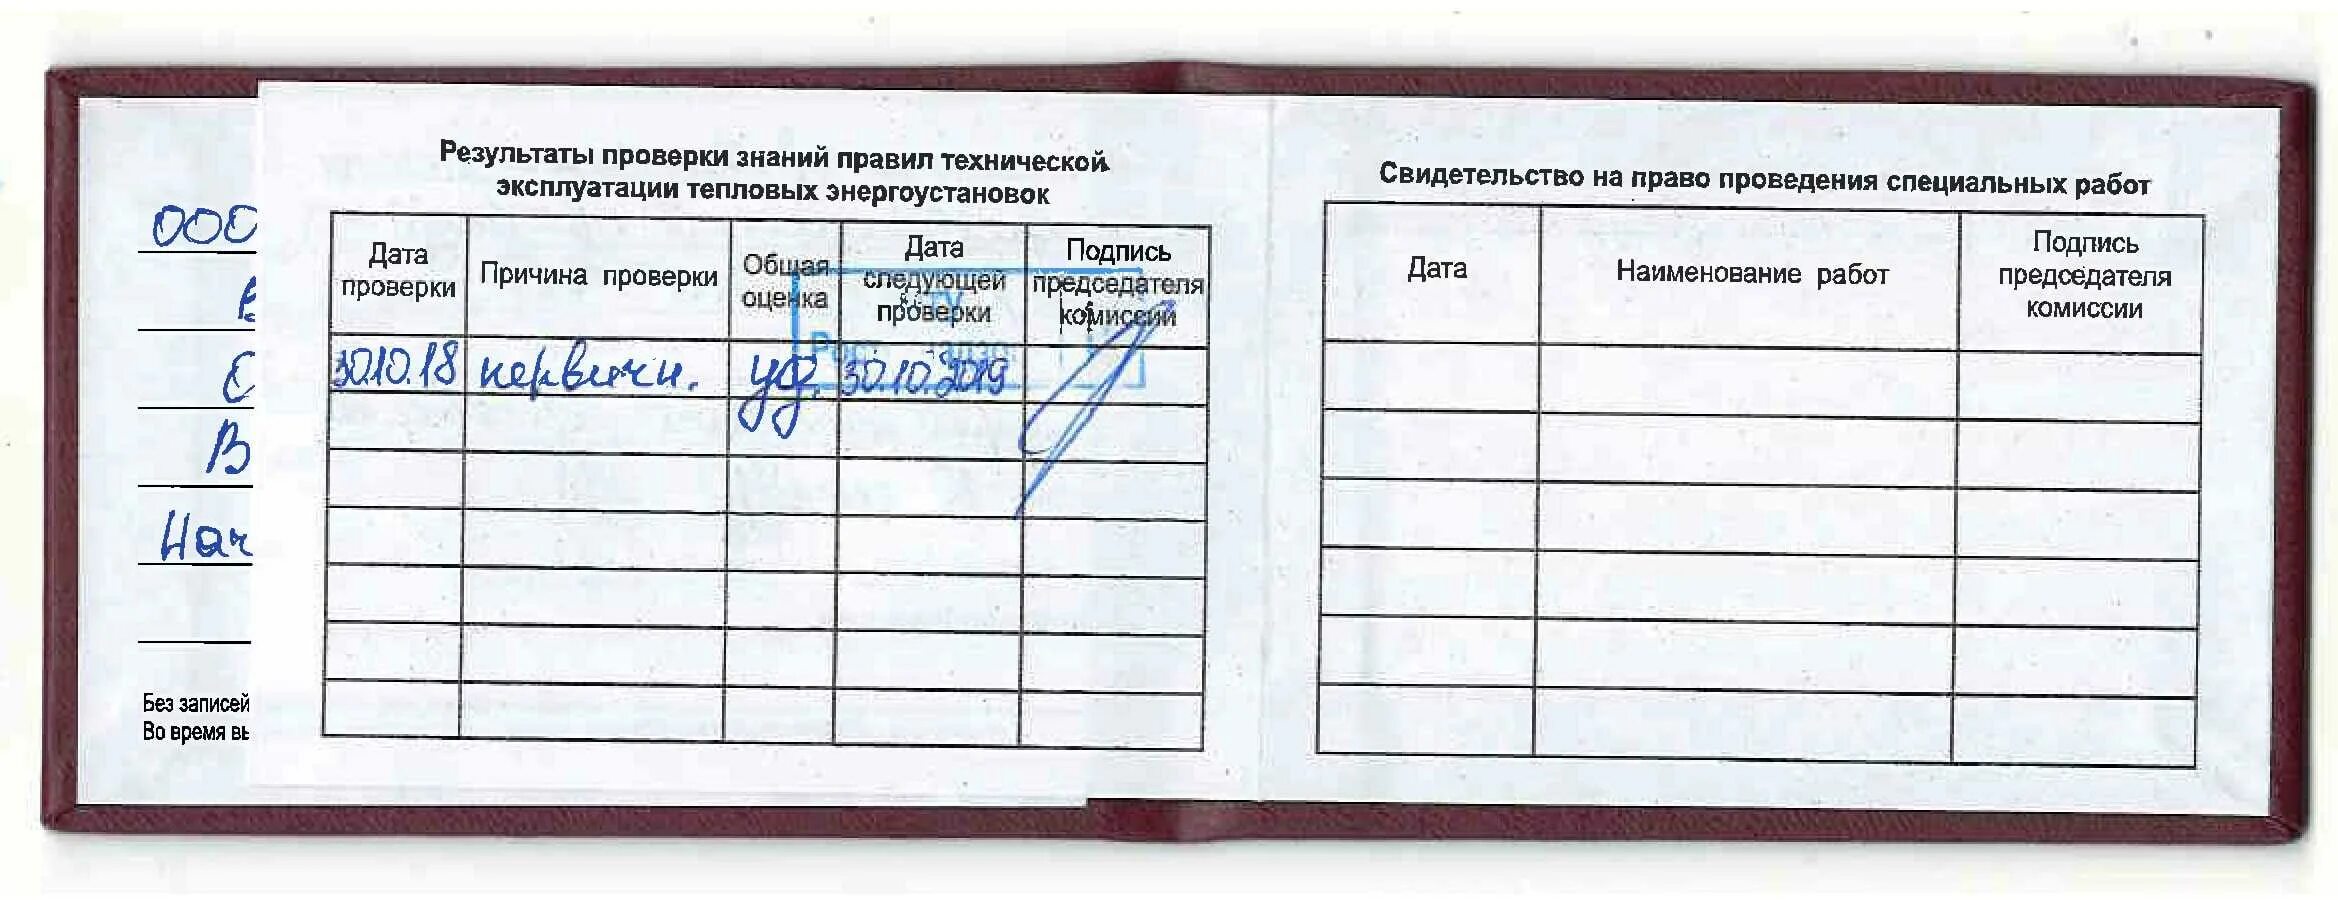 ООО
В
Нач
Без записей
Во время вы
Результаты проверки знаний правил технической
эксплуатации тепловых энергоустановок
Дата проверки
Причина проверки
Общая оценка
Дата следующей проверки
Подпись председателя комиссии
30.10.18 первичн. уд. 30.10.2019
ТУ
Свидетельство на право проведения специальных работ
Дата
Наименование работ
Подпись председателя комиссии